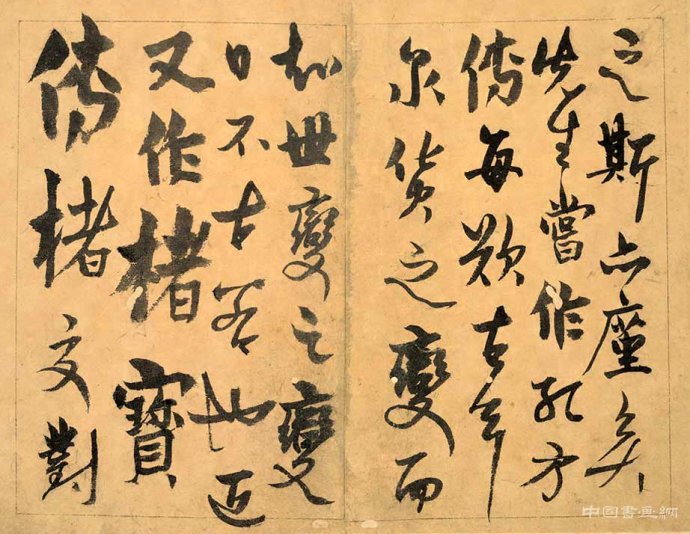 之斯亦矣
先生嘗作孔方
傳每歎古今
泉貨之變而
知世變之變
日不古若也近
又作楮寶
傳楮文對
中国書画網